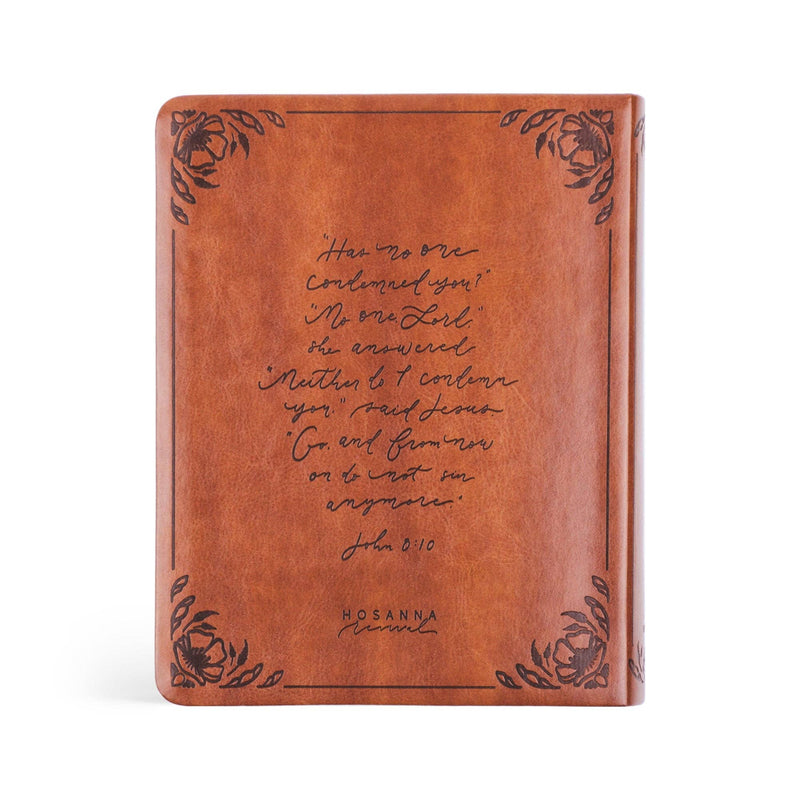 "Has no one
condemned you?"
"No one, Lord,"
she answered.
"Neither do I condemn
you," said Jesus
"Go, and from now
on do not sin
anymore."
John 8:10
HOSANNA
revival